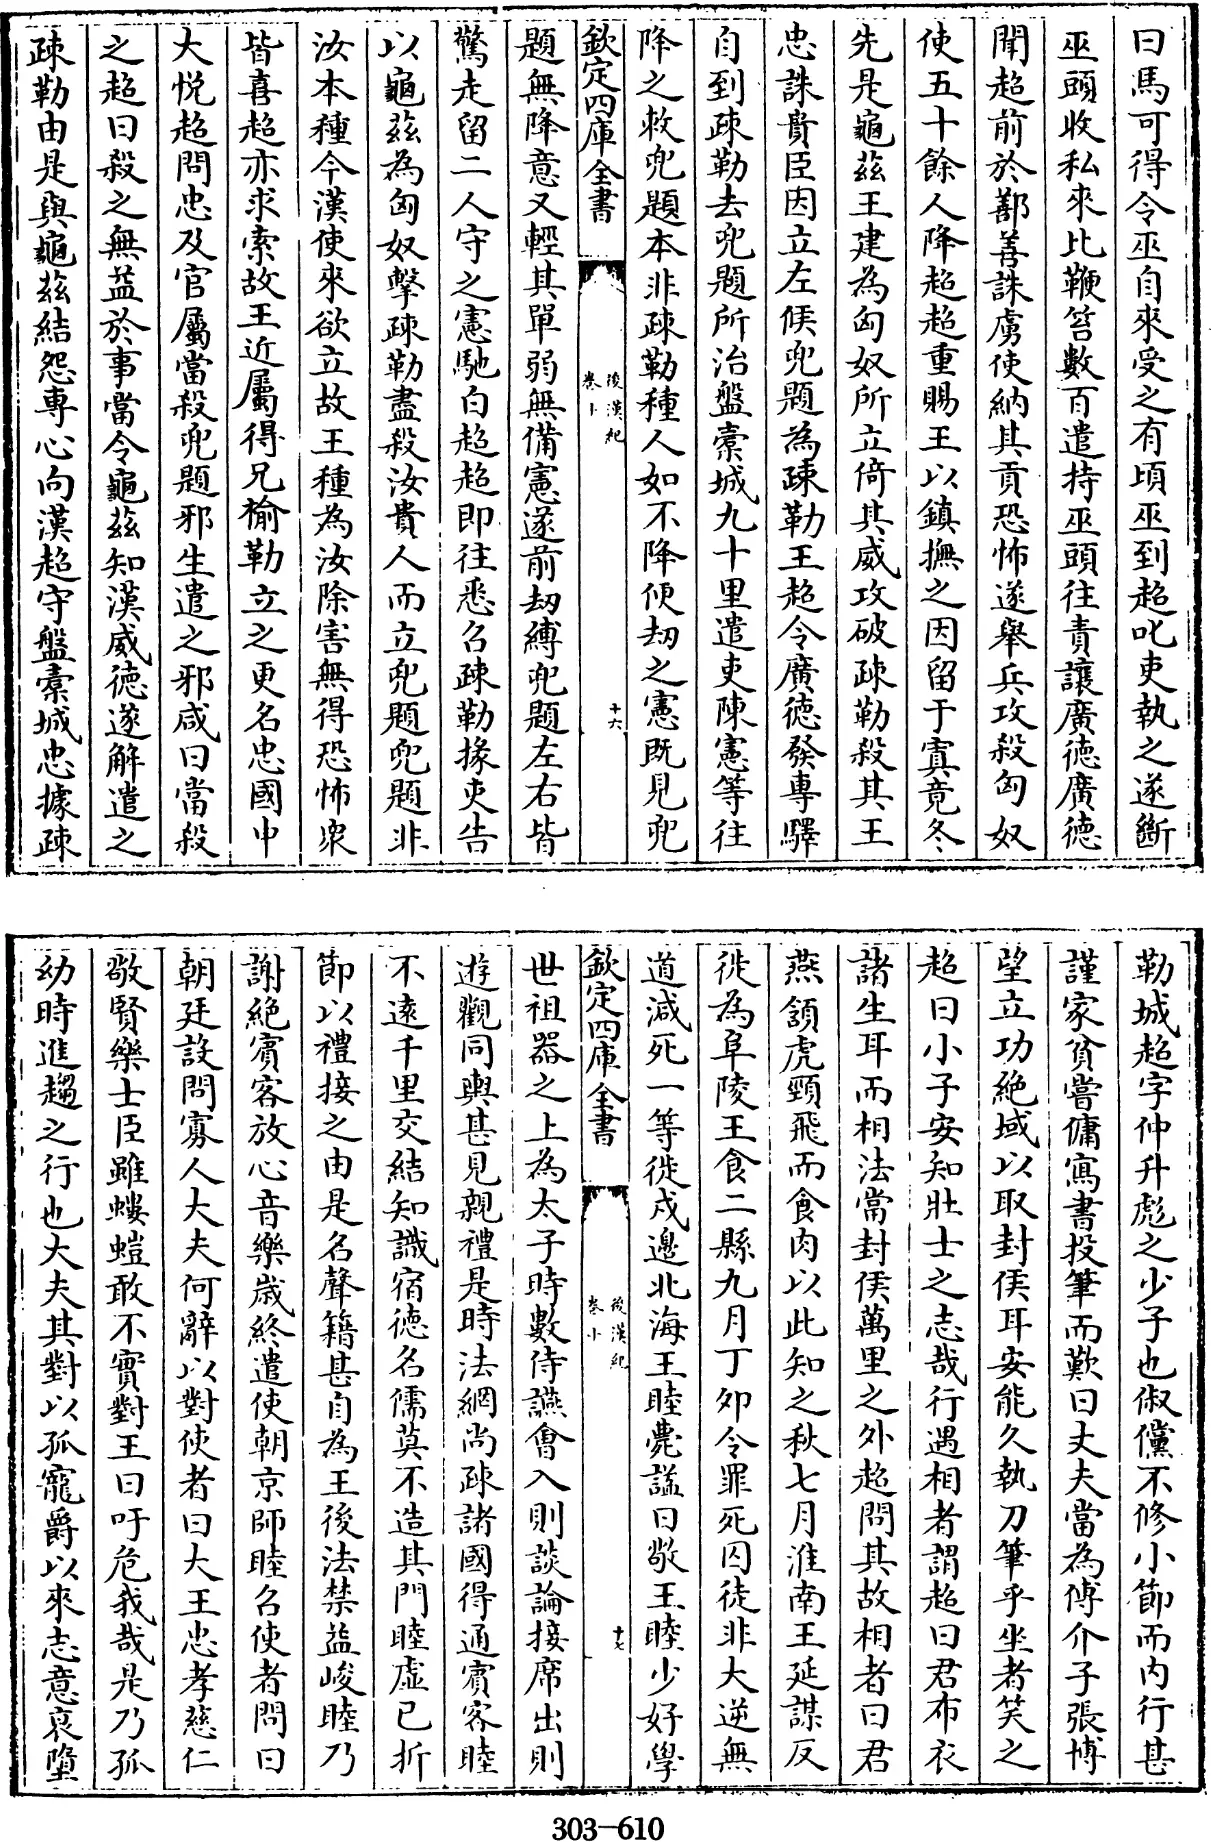 曰馬可得令巫自來受之有頃巫到超叱吏執之遂斷
巫頭收私來比鞭笞數百遣持巫頭往責讓廣德廣德
聞超前於鄯善誅虜使納其貢恐怖遂舉兵攻殺匈奴
使五十餘人降超超重賜王以鎮撫之因留于寘竟冬
先是龜茲王建為匈奴所立倚其威攻破疎勒殺其王
忠誅貴臣因立左侯兜題為疎勒王超令廣德發專驛
自到疎勒去兜題所治盤槖城九十里遣吏陳憲等往
降之敕兜題本非疎勒種人如不降便刼之憲既見兜
欽定四庫全書
後漢紀
卷十
十六
題無降意又輕其單弱無備憲遂前刼縛兜題左右皆
驚走留二人守之憲馳白超超即往悉召疎勒掾吏告
以龜茲為匈奴擊疎勒盡殺汝貴人而立兜題兜題非
汝本種今漢使來欲立故王種為汝除害無得恐怖衆
皆喜超亦求索故王近屬得兄榆勒立之更名忠國中
大悅超問忠及官屬當殺兜題邪生遣之邪咸曰當殺
之超曰殺之無益於事當令龜茲知漢威德遂解遣之
疎勒由是與龜茲結怨專心向漢超守盤槖城忠據疎
勒城超字仲升彪之少子也俶儻不修小節而內行甚
謹家貧嘗傭寫書投筆而歎曰丈夫當為傅介子張博
望立功絕域以取封侯耳安能久執刀筆乎坐者笑之
超曰小子安知壯士之志哉行遇相者謂超曰君布衣
諸生耳而相法當封侯萬里之外超問其故相者曰君
燕頷虎頸飛而食肉以此知之秋七月淮南王延謀反
徙為阜陵王食二縣九月丁夘令罪死囚徒非大逆無
道減死一等徙戍邊北海王睦薨諡曰敬王睦少好學
欽定四庫全書
後漢紀
卷十
十七
世祖器之上為太子時數侍讌會入則談論接席出則
遊觀同輿甚見親禮是時法網尚疎諸國得通賓客睦
不遠千里交結知識宿德名儒莫不造其門睦虛己折
節以禮接之由是名聲籍甚自為王後法禁益峻睦乃
謝絕賓客放心音樂歲終遣使朝京師睦召使者問曰
朝廷設問寡人大夫何辭以對使者曰大王忠孝慈仁
敬賢樂士臣雖螻螘敢不實對王曰吁危我哉是乃孤
幼時進趨之行也大夫其對以孤寵爵以來志意衰墮
303—610